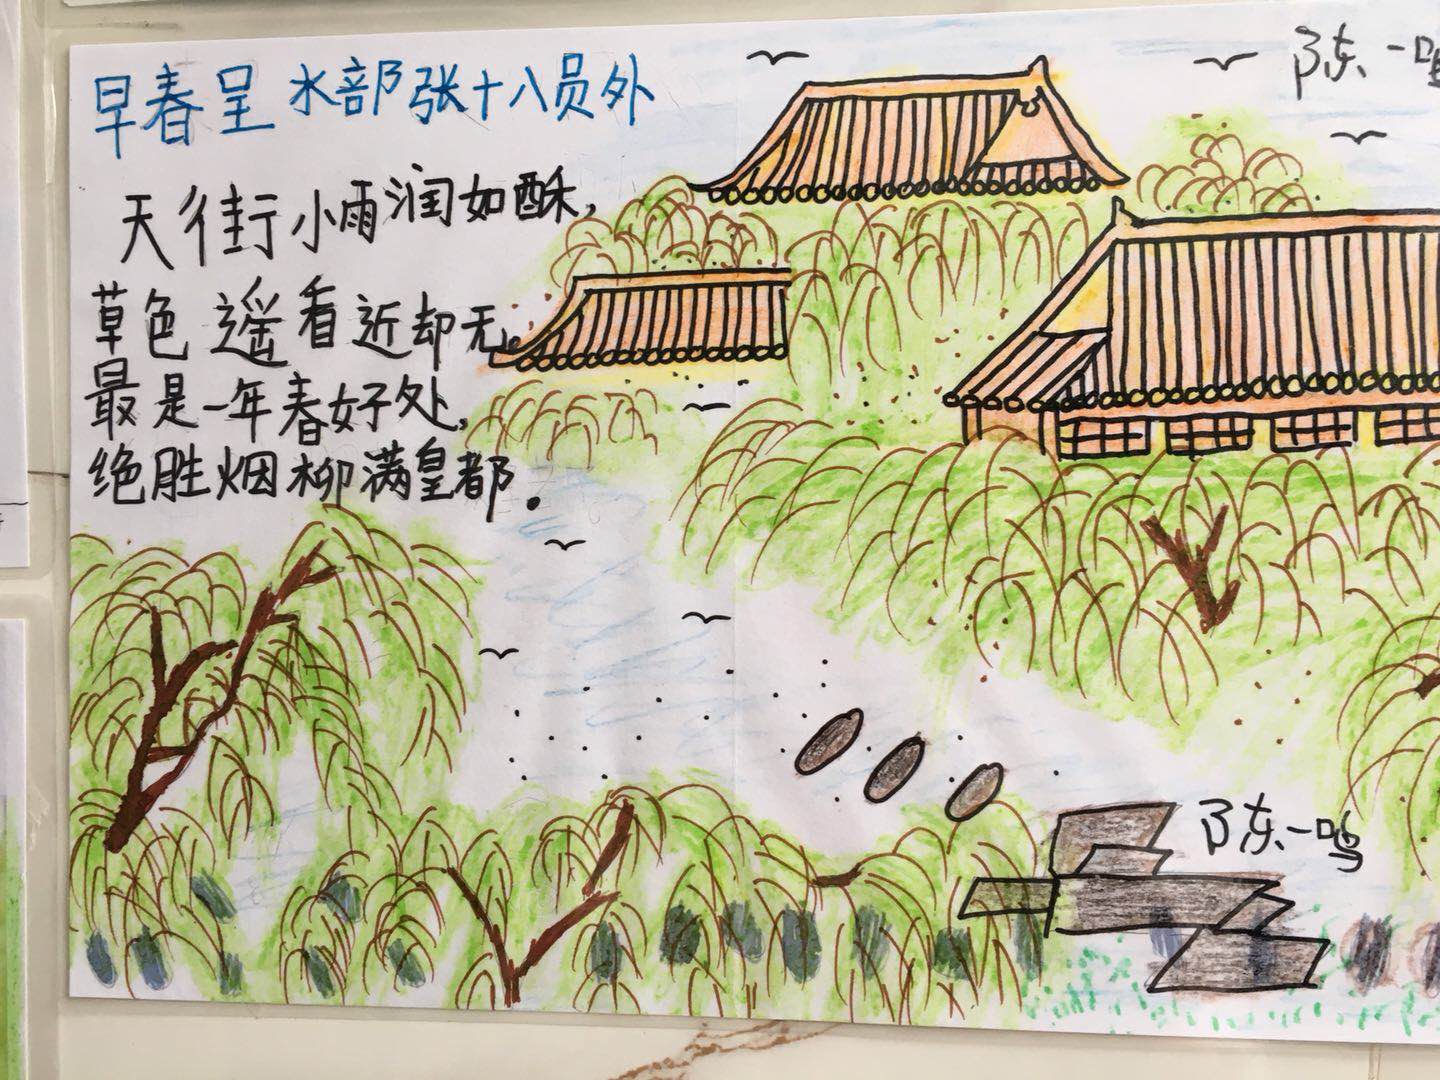 早春呈水部张十八员外
天街小雨润如酥,
草色遥看近却无。
最是一年春好处,
绝胜烟柳满皇都.
陈一鸣
陈一鸣